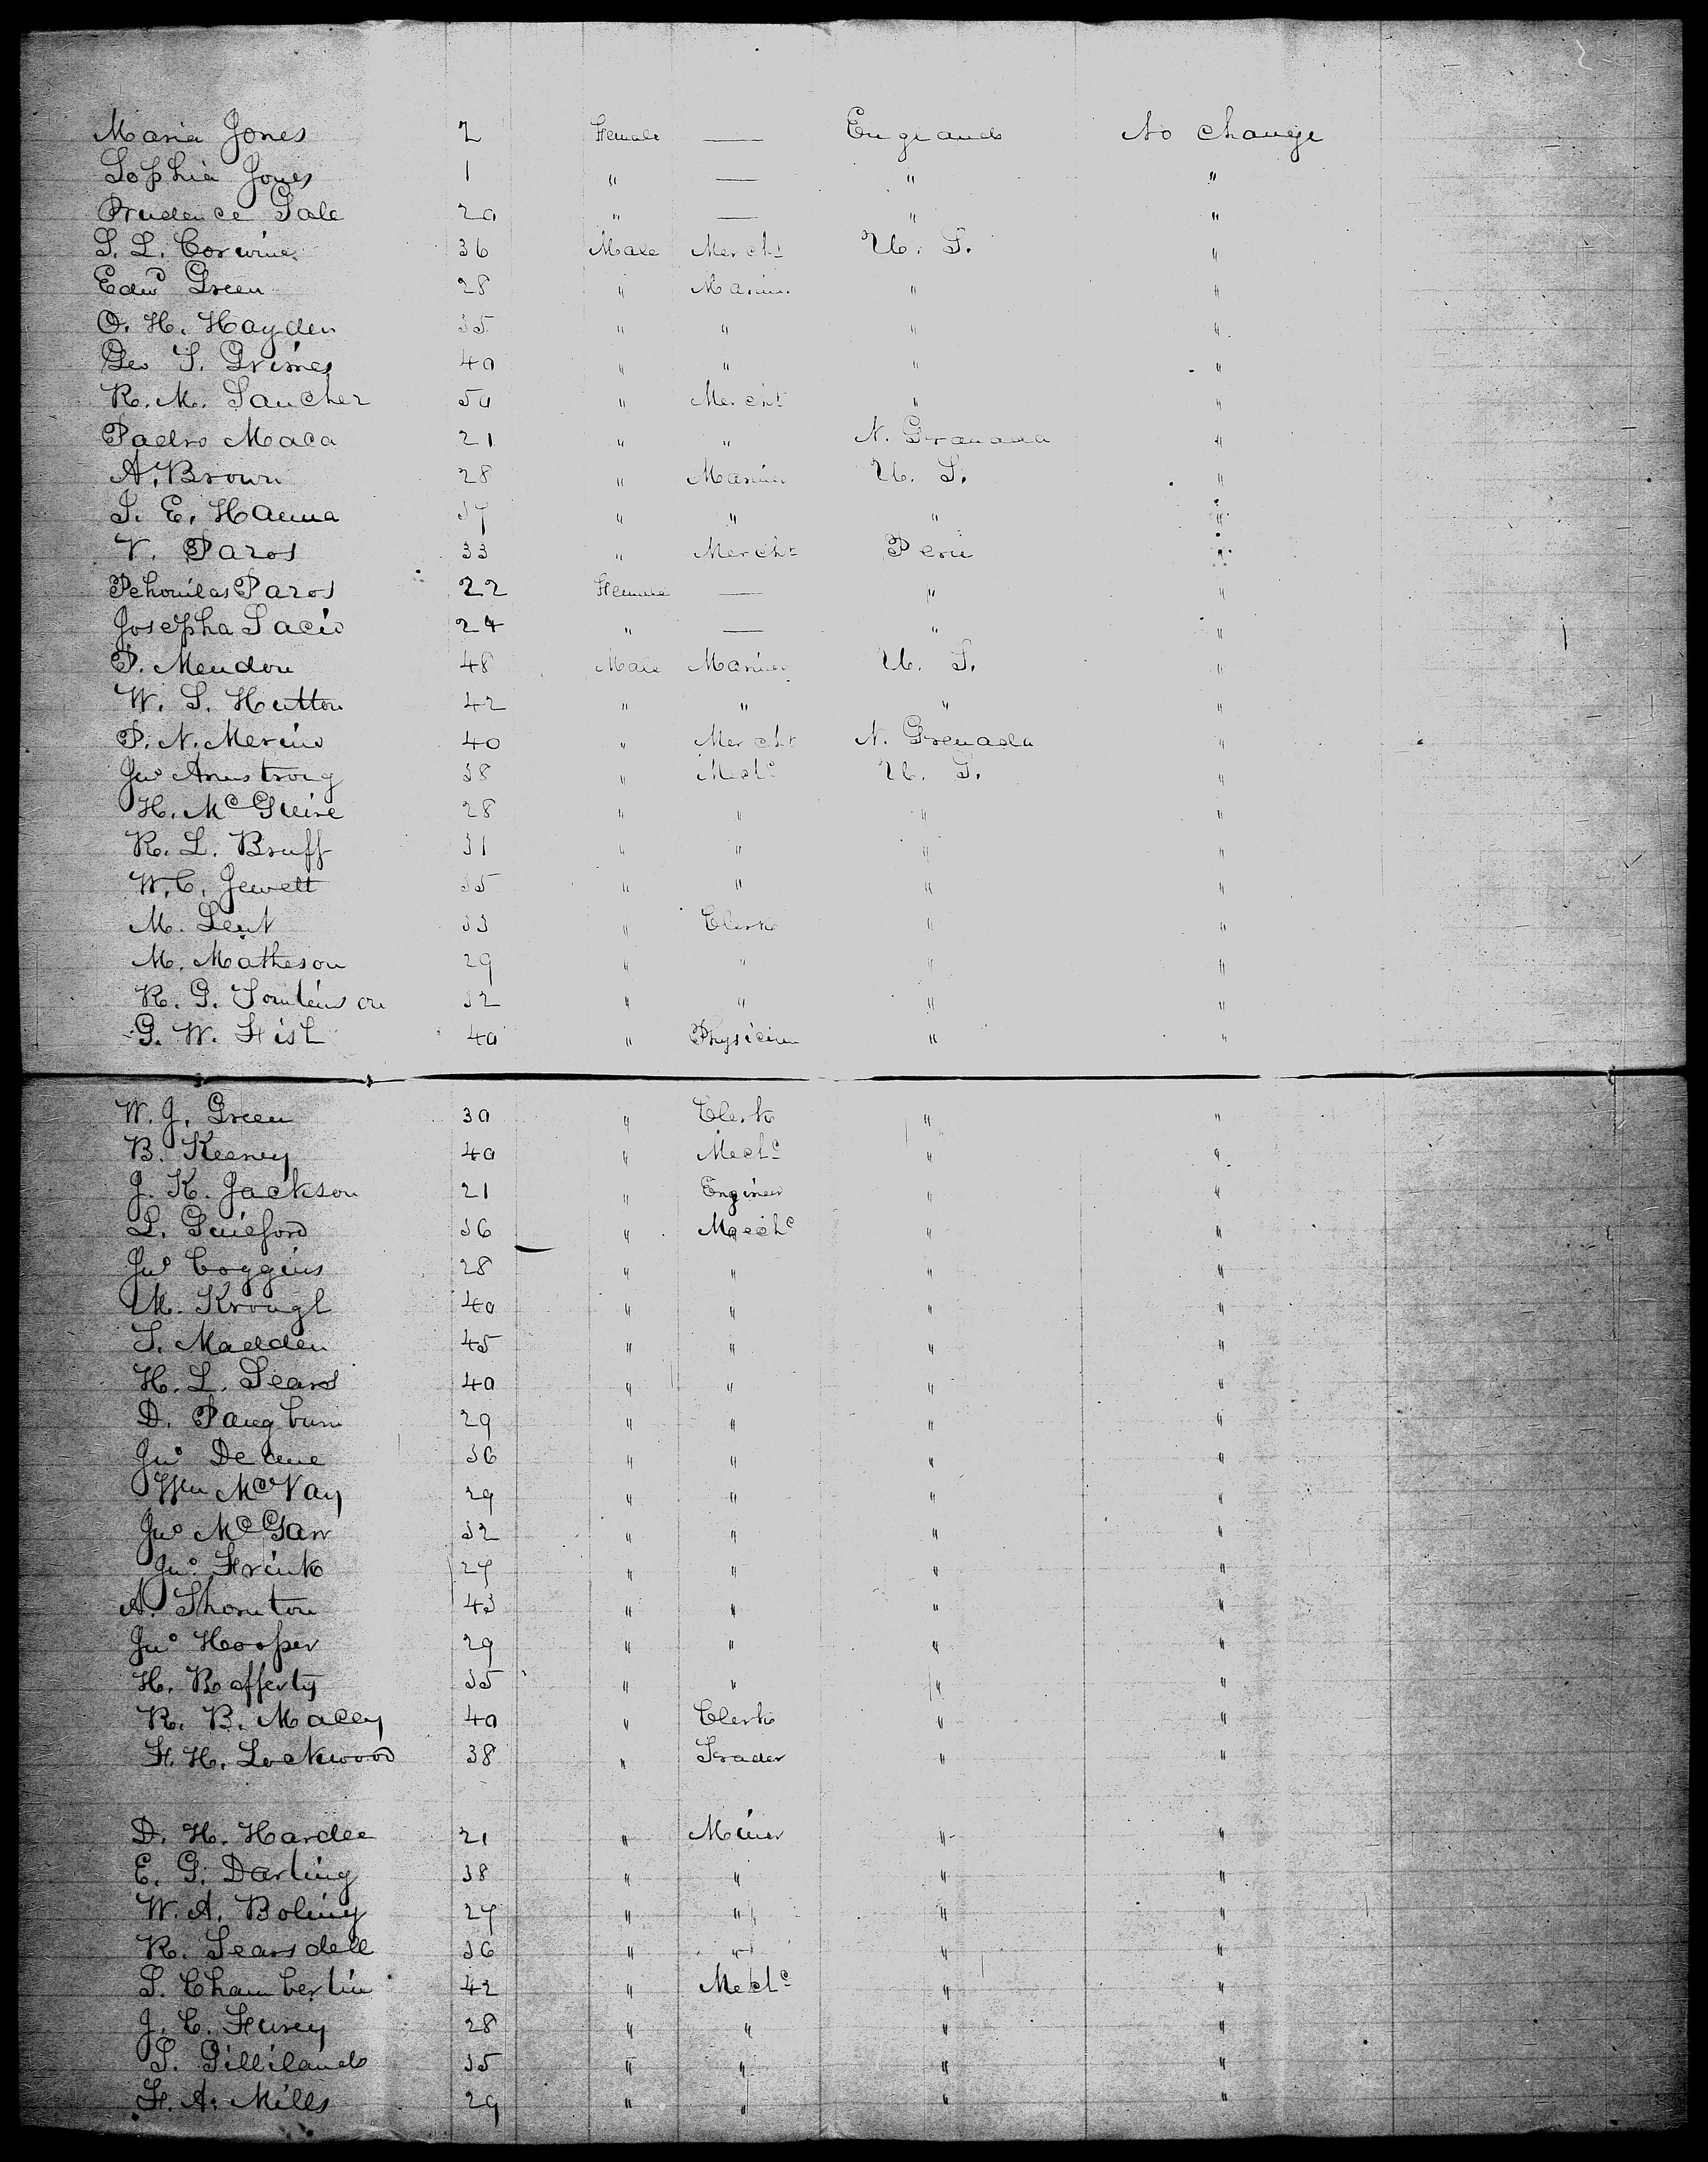 Maria Jones 2 Female — England No Change
Sophia Jones 1 " — " "
Prudence Gale 20 " — " "
S. L. Corwine 36 Male Mercht U. S. "
Edwd Green 28 " Mariner " "
O. H. Hayden 35 " " " "
Geo S. Grimes 40 " " " "
R. M. Sancher 50 " Mercht " "
Padro Maca 21 " " N. Granada "
A. Brown 28 " Mariner U. S. "
S. E. Hanna 37 " " " "
V. Pazos 33 " Mercht Peru "
Pazos 22 Female — " "
Josepha 24 " — " "
P. Mendon 48 Male Mariner U. S. "
W. S. Hutton 42 " " " "
P. N. Merino 40 " Mercht N. Grenada "
Jno Armstrong 38 " Mechc U. S. "
H. McGuire 28 " " " "
R. L. Bruff 31 " " " "
W. C. Jewett 35 " " " "
M. Lent 33 " Clerk " "
M. Matheson 29 " " " "
R. G. Tomlinson 32 " " " "
G. W. Fish 40 " Physician " "
W. J. Green 30 " Clerk " "
B. Keeney 40 " Mechc " "
J. K. Jackson 21 " Engineer " "
L. Guilford 36 " Mechc " "
Jno Coggins 28 " " " "
M. Krough 40 " " " "
S. Madden 45 " " " "
H. L. Sears 40 " " " "
D. Pangburn 29 " " " "
Jno Delane 36 " " " "
Wm McVay 29 " " " "
Jno McGarr 32 " " " "
Jno Frink 27 " " " "
A. Thornton 43 " " " "
Jno Hooper 29 " " " "
H. Rafferty 35 " " " "
R. B. Macey 40 " Clerk " "
F. H. Lockwood 38 " Trader " "
D. H. Hardee 21 " Miner " "
E. G. Darling 38 " " " "
W. A. Boling 27 " " " "
R. Searsdell 36 " " " "
S. Chamberlin 42 " Mechc " "
J. C. Furey 28 " " " "
S. Gilliland 35 " " " "
F. A. Mills 29 " " " "